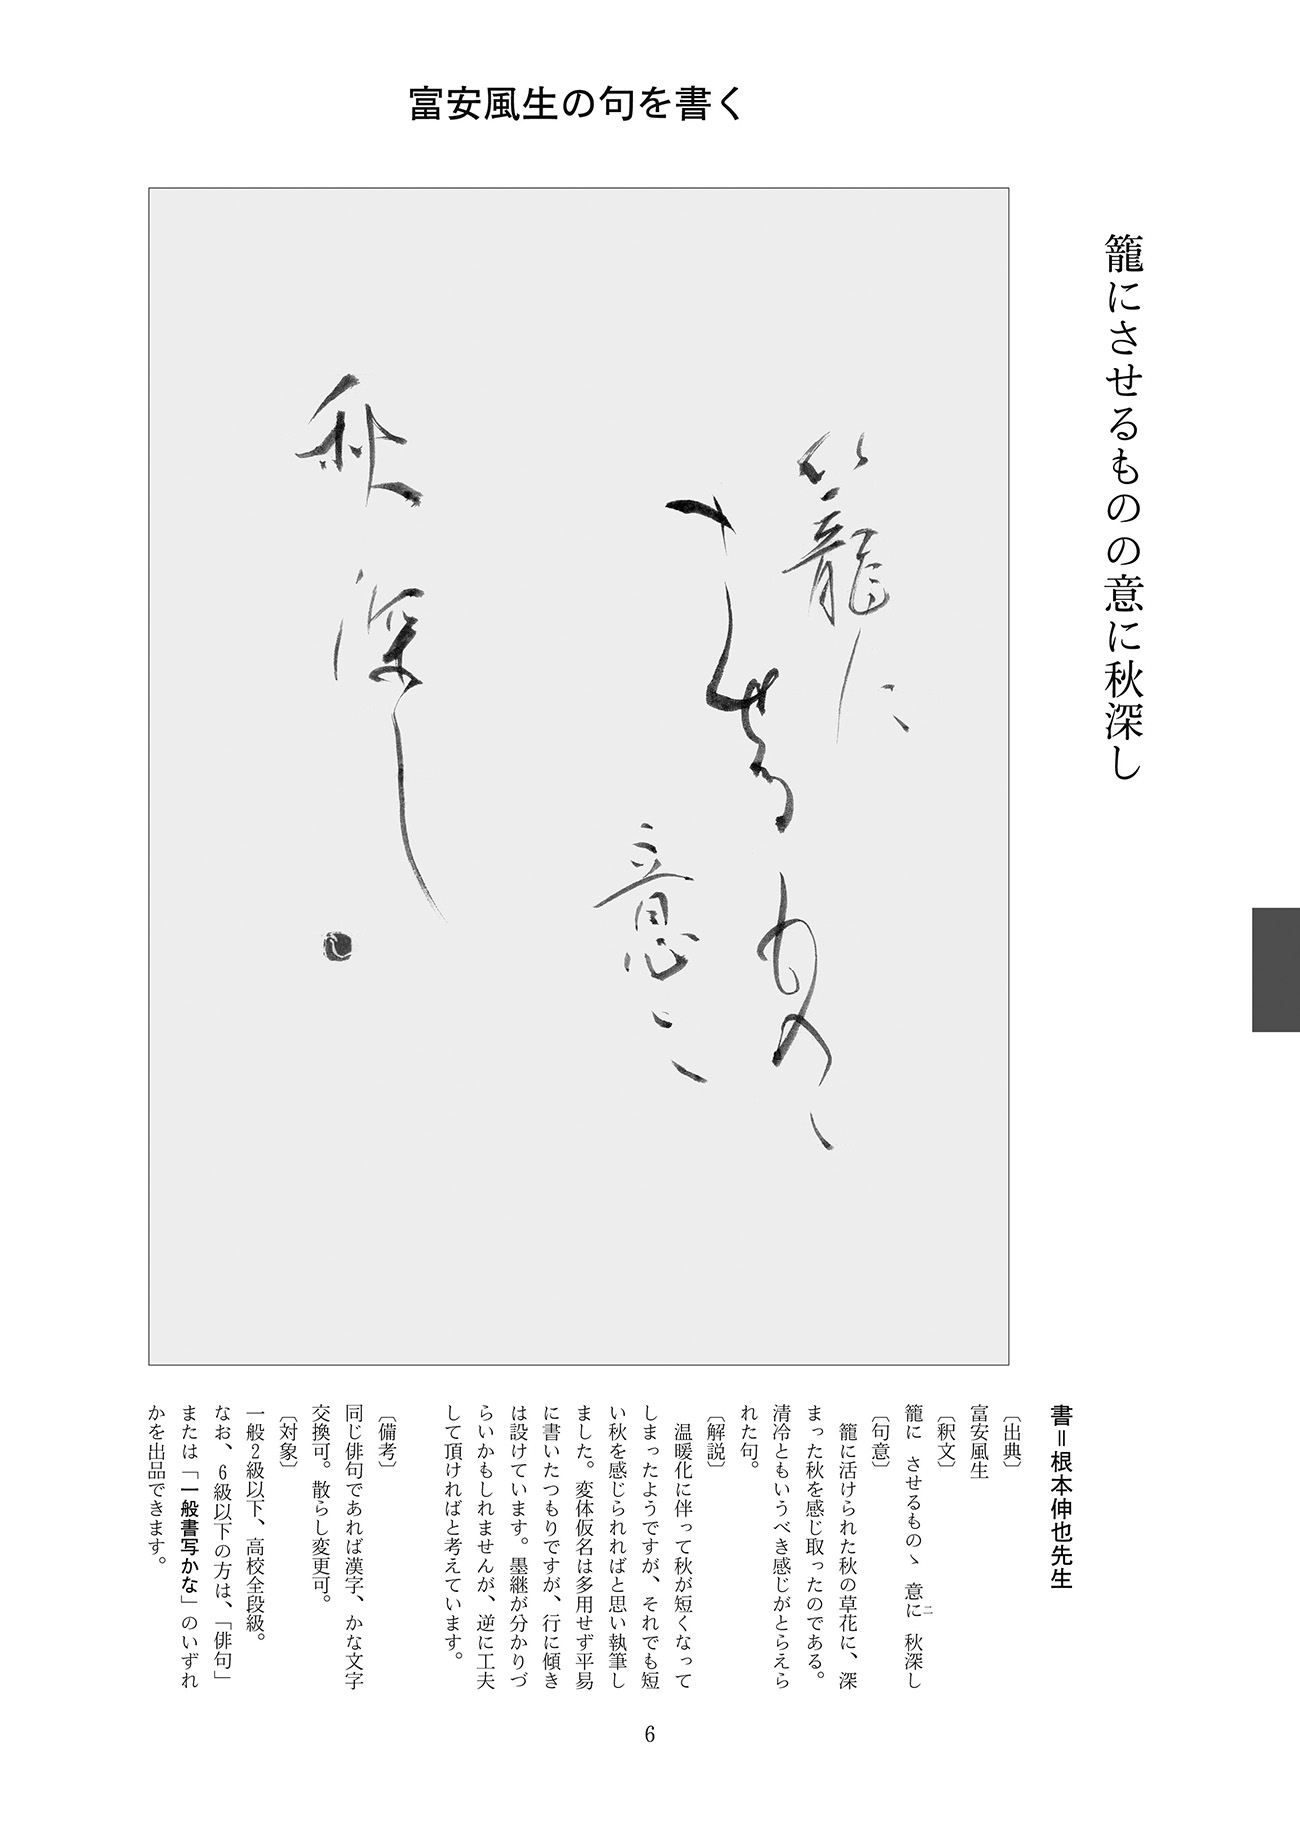 富安風生の句を書く
籠にさせるものの意に秋深し
籠に
させるものゝ
意二
秋深し
書＝根本伸也先生
〔出典〕
富安風生
〔釈文〕
籠に　させるものゝ　意に二　秋深し
〔句意〕
　籠に活けられた秋の草花に、深
まった秋を感じ取ったのである。
清冷ともいうべき感じがとらえら
れた句。
〔解説〕
　温暖化に伴って秋が短くなって
しまったようですが、それでも短
い秋を感じられればと思い執筆し
ました。変体仮名は多用せず平易
に書いたつもりですが、行に傾き
は設けています。墨継が分かりづ
らいかもしれませんが、逆に工夫
して頂ければと考えています。
〔備考〕
同じ俳句であれば漢字、かな文字
交換可。散らし変更可。
〔対象〕
一般2級以下、高校全段級。
なお、6級以下の方は、「俳句」
または「一般書写かな」のいずれ
かを出品できます。
6